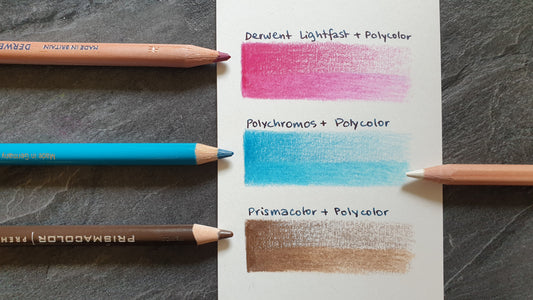 Derwent Lightfast + Polycolor
MADE IN BRITAIN DERWE
Polychromos + Polycolor
Made in Germany
Prismacolor + Polycolor
PRISMACOLOR PREM